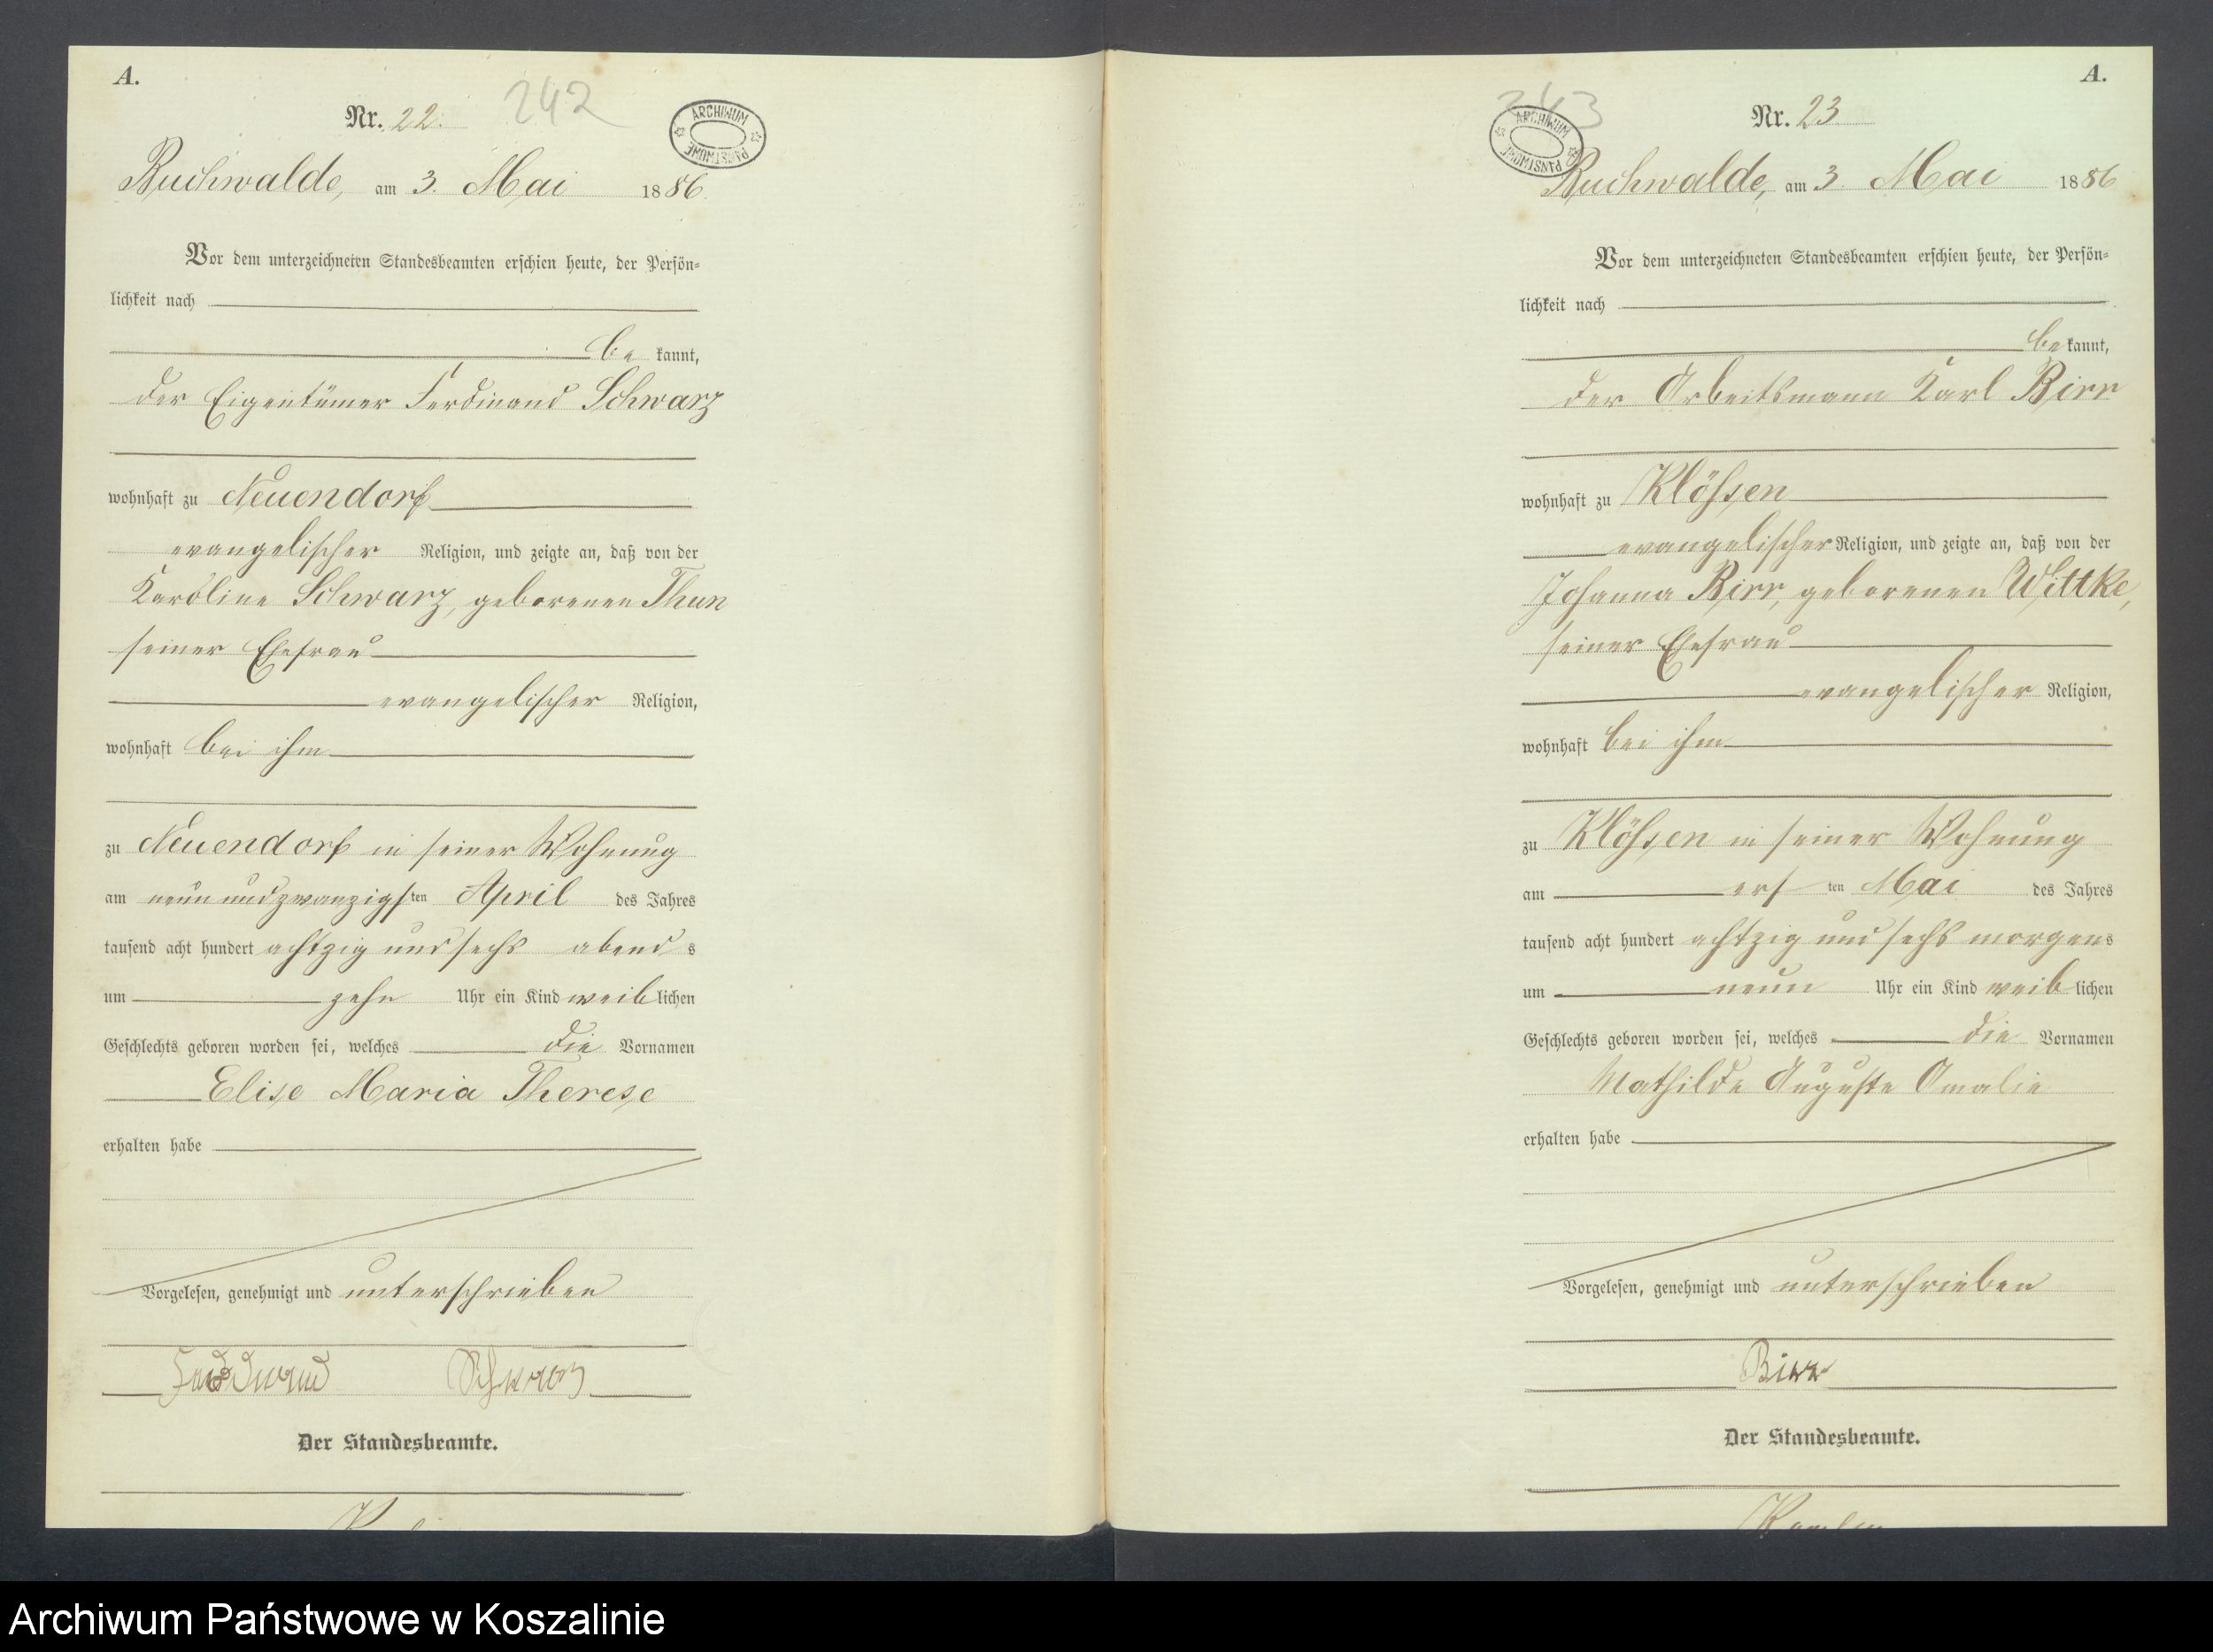 A.
Nr. 22.
242
ARCHIWUM PAŃSTWOWE
Buchwalde, am 3. Mai 1886.
Vor dem unterzeichneten Standesbeamten erschien heute, der Persön=
lichkeit nach
be kannt,
der Eigentümer Ferdinand Schwarz
wohnhaft zu Neuendorf
evangelischer Religion, und zeigte an, daß von der
Karoline Schwarz, geborenen Thun
seiner Ehefrau
evangelischer Religion,
wohnhaft bei ihm
zu Neuendorf in seiner Wohnung
am neun und zwanzigsten April des Jahres
tausend acht hundert achtzig und sechs abends
um zehn Uhr ein Kind weiblichen
Geschlechts geboren worden sei, welches die Vornamen
Elise Maria Therese
erhalten habe
Vorgelesen, genehmigt und unterschrieben
Ferdinand Schwarz
Der Standesbeamte.
A.
Nr. 23
243
ARCHIWUM PAŃSTWOWE
Buchwalde, am 3. Mai 1886
Vor dem unterzeichneten Standesbeamten erschien heute, der Persön=
lichkeit nach
bekannt,
der Arbeitsmann Karl Birr
wohnhaft zu Klößen
evangelischer Religion, und zeigte an, daß von der
Johanna Birr, geborenen Wittke,
seiner Ehefrau
evangelischer Religion,
wohnhaft bei ihm
zu Klößen in seiner Wohnung
am ersten Mai des Jahres
tausend acht hundert achtzig und sechs morgens
um neun Uhr ein Kind weiblichen
Geschlechts geboren worden sei, welches die Vornamen
Mathilde Auguste Amalie
erhalten habe
Vorgelesen, genehmigt und unterschrieben
Birr
Der Standesbeamte.
Archiwum Państwowe w Koszalinie